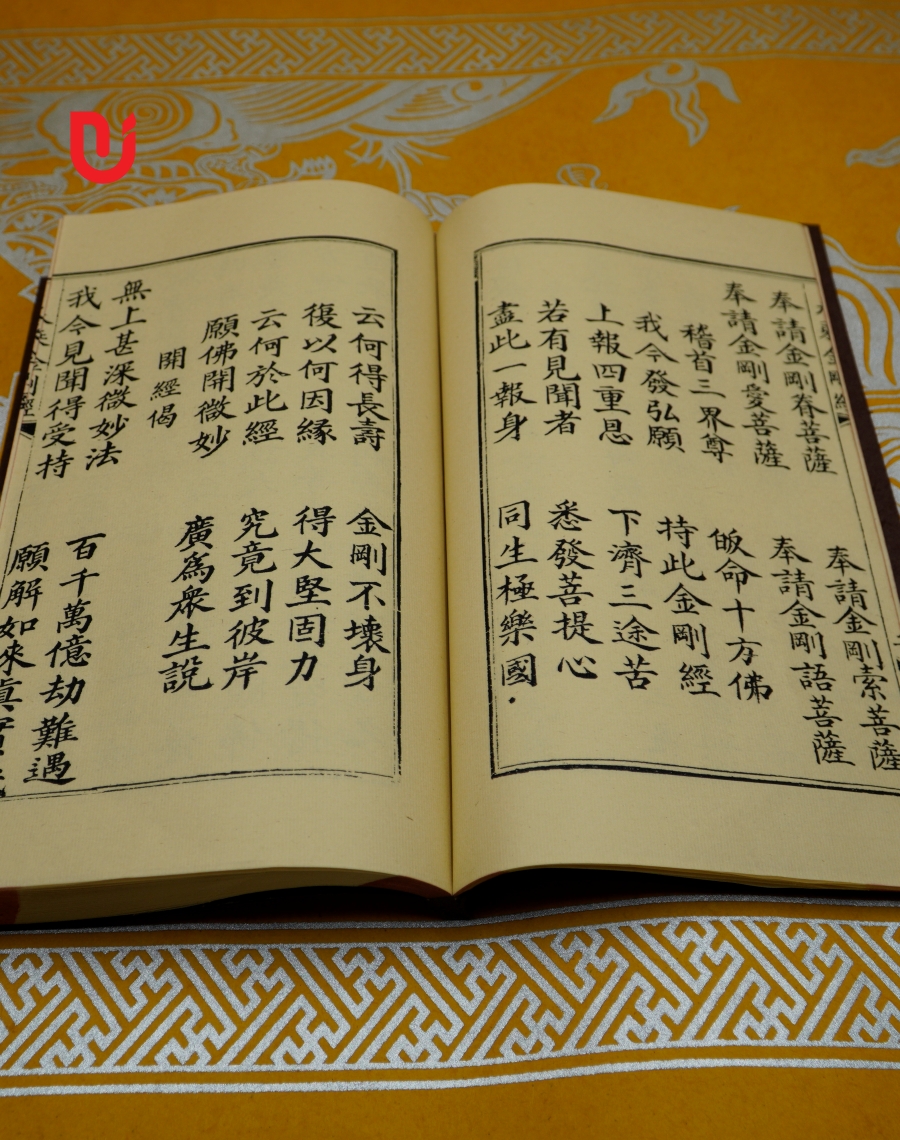 奉請金剛眷菩薩 奉請金剛索菩薩
奉請金剛愛菩薩 奉請金剛語菩薩
稽首三界尊 皈命十方佛
我今發弘願 持此金剛經
上報四重恩 下濟三途苦
若有見聞者 悉發菩提心
盡此一報身 同生極樂國
云何得長壽 金剛不壞身
復以何因緣 得大堅固力
云何於此經 究竟到彼岸
願佛開微妙 廣爲眾生說
開經偈
無上甚深微妙法 百千萬億劫難遇
我今見聞得受持 願解如來眞實